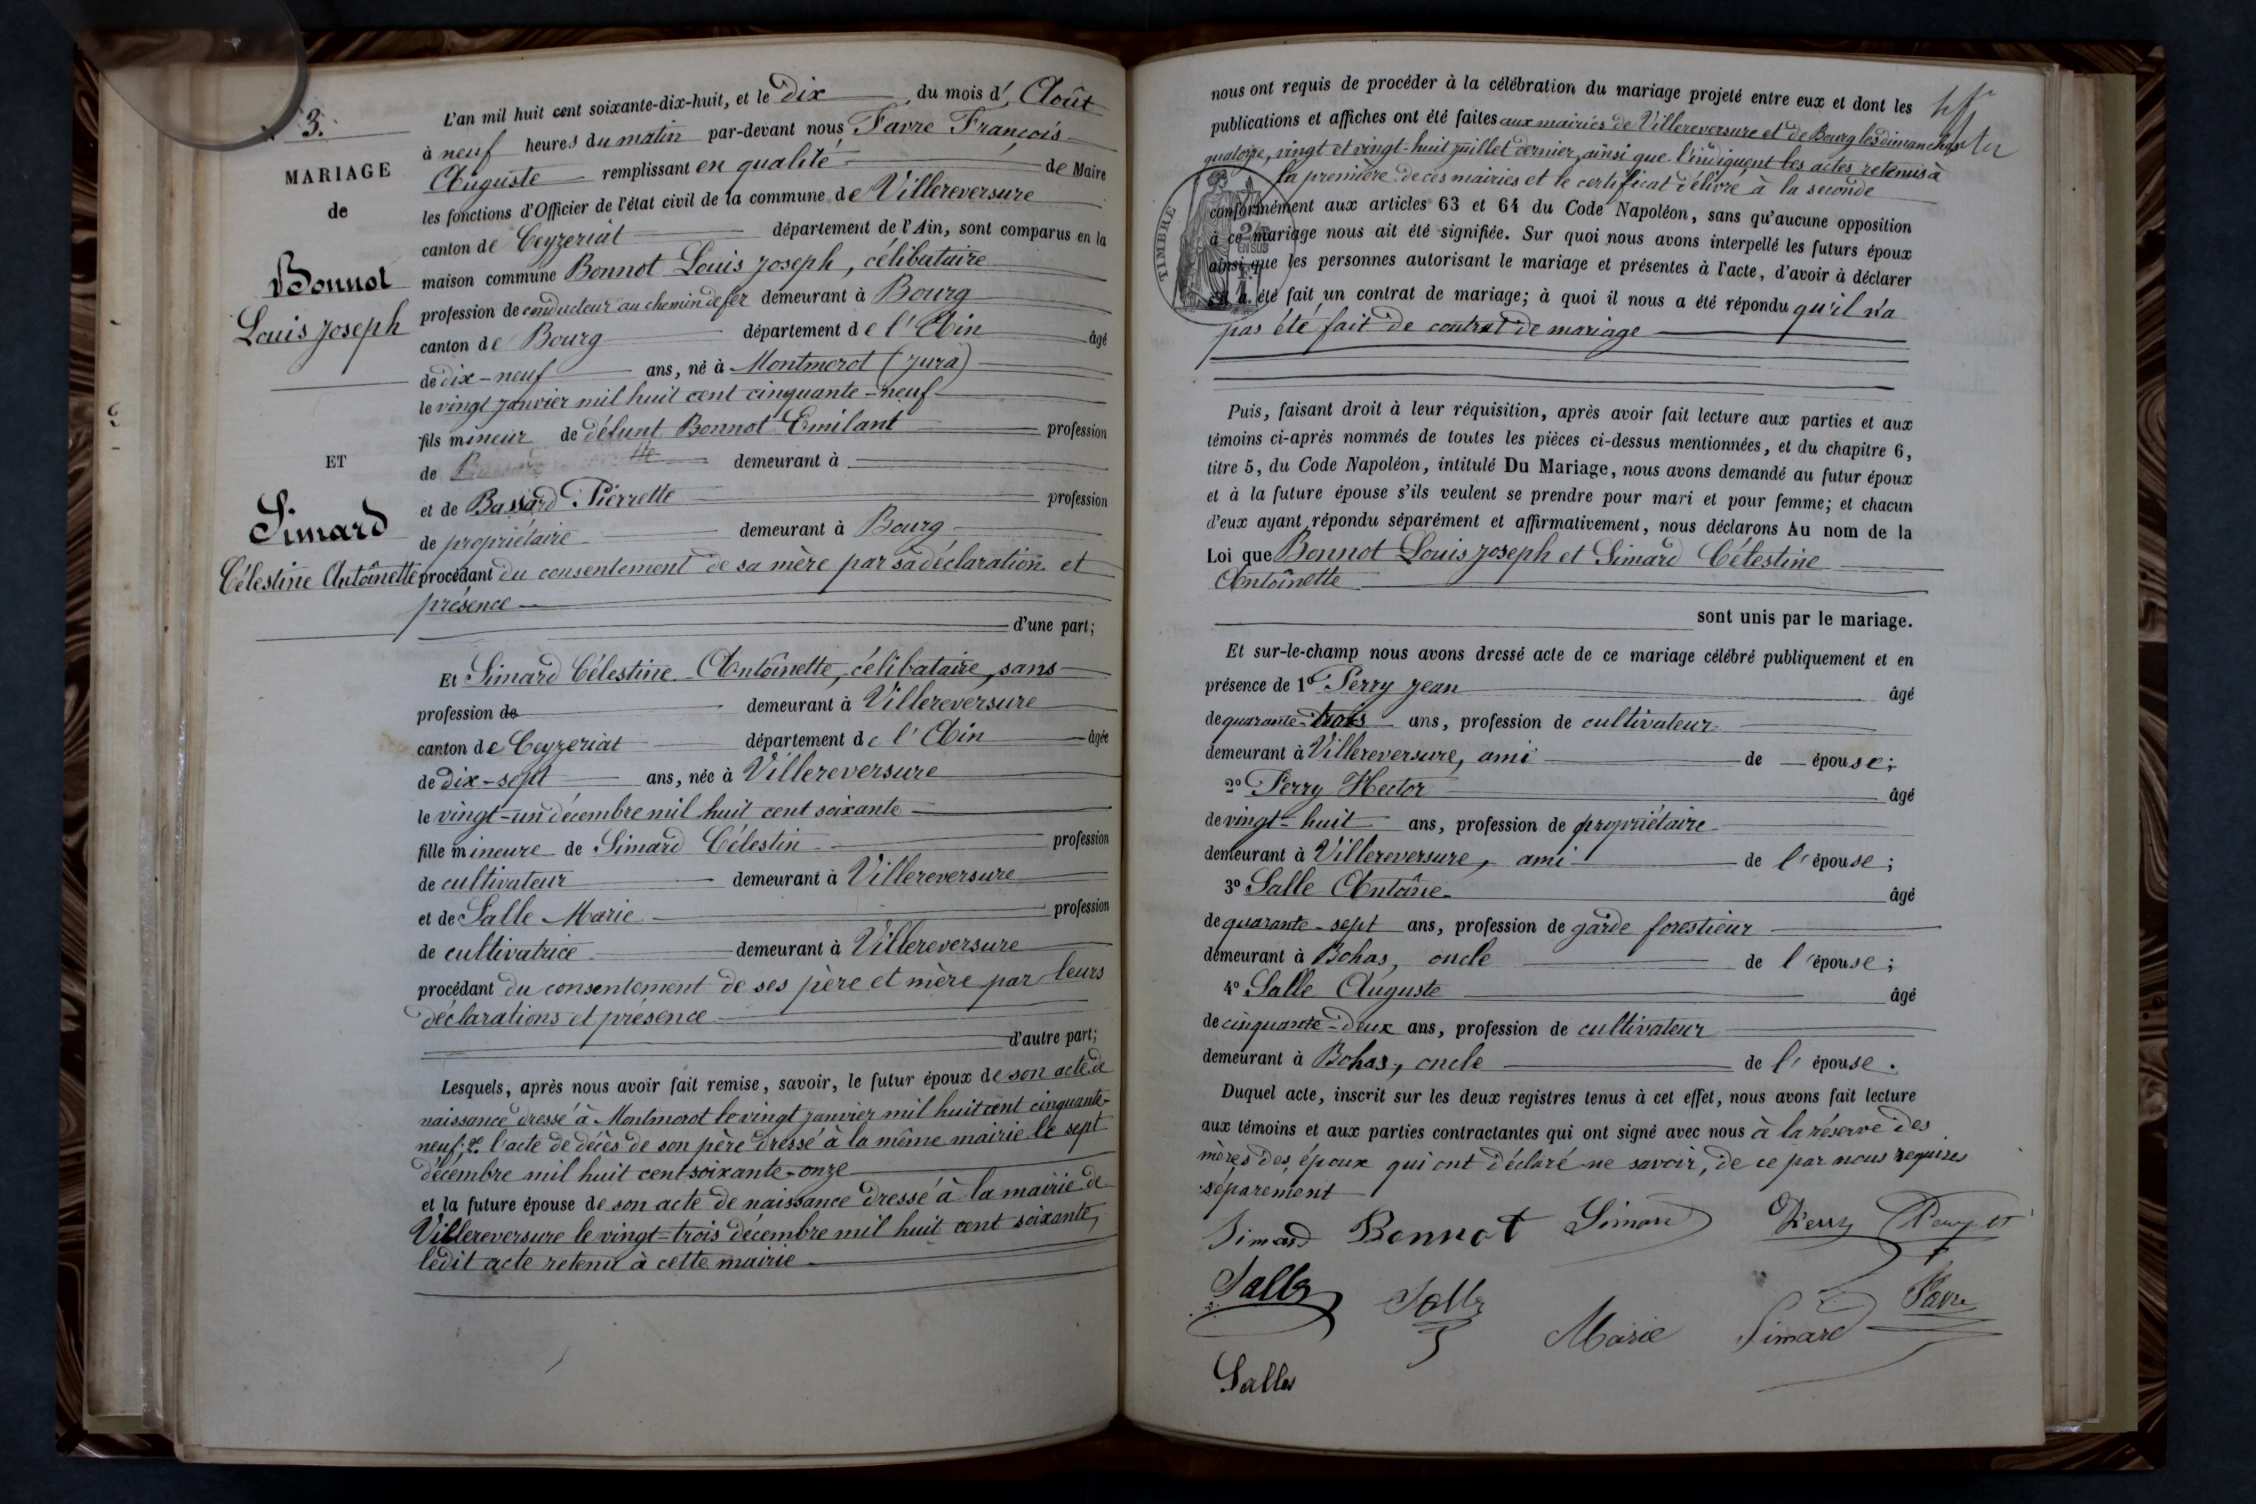 N° 3.
MARIAGE
de
Bonnot
Louis Joseph
ET
Simard
Célestine Antoinette
L'an mil huit cent soixante-dix-huit, et le dix du mois d' Août
à neuf heures du matin par-devant nous Favre François
Auguste remplissant en qualité de Maire
les fonctions d'Officier de l'état civil de la commune de Villereversure
canton de Ceyzeriat département de l'Ain, sont comparus en la
maison commune Bonnot Louis Joseph, célibataire
profession de conducteur au chemin de fer demeurant à Bourg
canton de Bourg département de l'Ain âgé
de dix-neuf ans, né à Montmorot (Jura)
le vingt janvier mil huit cent cinquante-neuf
fils mineur de défunt Bonnot Emilant profession
de demeurant à
et de Bassard Pierrette profession
de propriétaire demeurant à Bourg
procédant du consentement de sa mère par sa déclaration et
présence
d'une part;
Et Simard Célestine Antoinette, célibataire, sans
profession de demeurant à Villereversure
canton de Ceyzeriat département de l'Ain âgée
de dix-sept ans, née à Villereversure
le vingt-un décembre mil huit cent soixante
fille mineure de Simard Célestin profession
de cultivateur demeurant à Villereversure
et de Salle Marie profession
de cultivatrice demeurant à Villereversure
procédant du consentement de ses père et mère par leurs
déclarations et présence
d'autre part;
Lesquels, après nous avoir fait remise, savoir, le futur époux de son acte de
naissance dressé à Montmorot le vingt janvier mil huit cent cinquante-
neuf; 2. l'acte de décès de son père dressé à la même mairie le sept
décembre mil huit cent soixante-onze
et la future épouse de son acte de naissance dressé à la mairie de
Villereversure le vingt-trois décembre mil huit cent soixante,
ledit acte retenu à cette mairie
nous ont requis de procéder à la célébration du mariage projeté entre eux et dont les
publications et affiches ont été faites aux mairies de Villereversure et de Bourg les dimanches
quatorze, vingt et vingt-huit juillet dernier, ainsi que l'indiquent les actes retenus à
la première de ces mairies et le certificat délivré à la seconde
TIMBRE
conformément aux articles 63 et 64 du Code Napoléon, sans qu'aucune opposition
à ce mariage nous ait été signifiée. Sur quoi nous avons interpellé les futurs époux
ainsi que les personnes autorisant le mariage et présentes à l'acte, d'avoir à déclarer
s'il a été fait un contrat de mariage; à quoi il nous a été répondu qu'il n'a
pas été fait de contrat de mariage
Puis, faisant droit à leur réquisition, après avoir fait lecture aux parties et aux
témoins ci-après nommés de toutes les pièces ci-dessus mentionnées, et du chapitre 6,
titre 5, du Code Napoléon, intitulé Du Mariage, nous avons demandé au futur époux
et à la future épouse s'ils veulent se prendre pour mari et pour femme; et chacun
d'eux ayant répondu séparément et affirmativement, nous déclarons Au nom de la
Loi que Bonnot Louis Joseph et Simard Célestine
Antoinette
sont unis par le mariage.
Et sur-le-champ nous avons dressé acte de ce mariage célébré publiquement et en
présence de 1° Perry Jean âgé
de quarante-trois ans, profession de cultivateur
demeurant à Villereversure, ami de épouse;
2° Perry Hector âgé
de vingt-huit ans, profession de propriétaire
demeurant à Villereversure, ami de l'épouse;
3° Salle Antoine âgé
de quarante-sept ans, profession de garde forestieur
demeurant à Bohas, oncle de l'épouse;
4° Salle Auguste âgé
de cinquante-deux ans, profession de cultivateur
demeurant à Bohas, oncle de l'épouse.
Duquel acte, inscrit sur les deux registres tenus à cet effet, nous avons fait lecture
aux témoins et aux parties contractantes qui ont signé avec nous à la réserve des
mères des époux qui ont déclaré ne savoir, de ce par nous requises
séparement
Simard Bonnot Simard Perry Perry
Salle Salle Marie Simard Favre
Salle